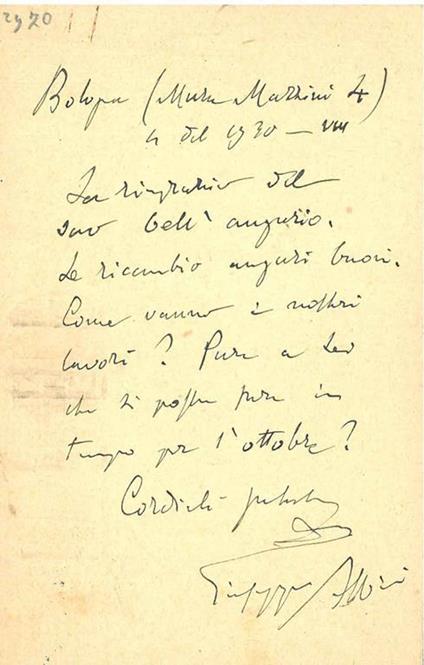 2970
Bologna (Mura Mazzini 4)
4 del 1930 - VIII
La ringrazio del
suo bell' augurio.
Le ricambio auguri buoni.
Come vanno i nostri
lavori? Pare a Lei
che si possa fare in
tempo per l'ottobre?
Cordiali saluti
Giuseppe Albini